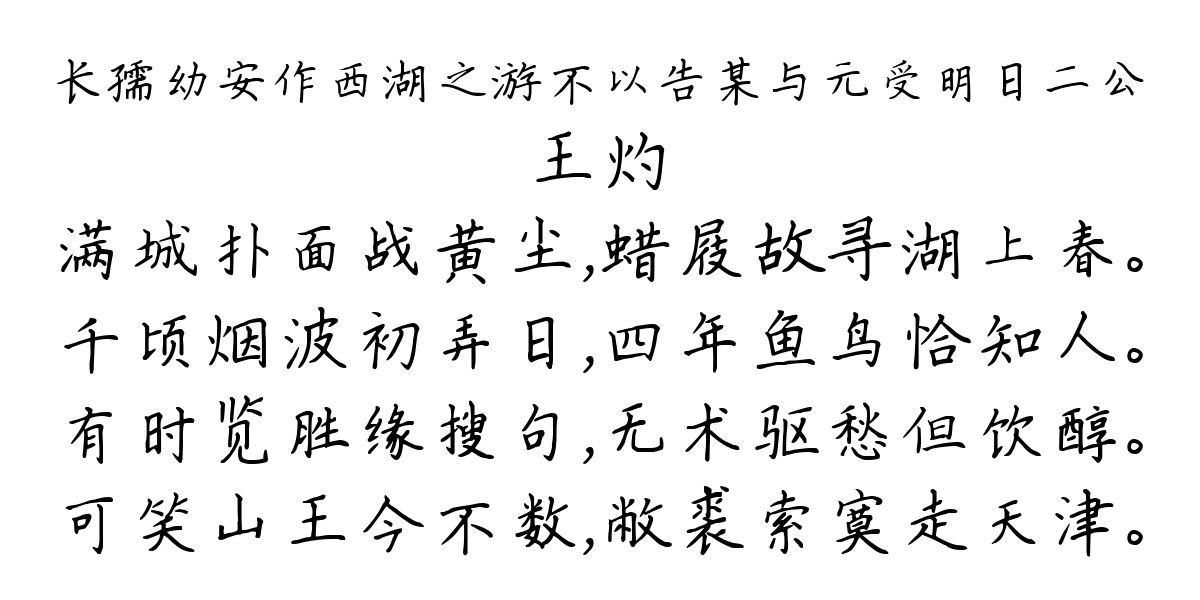 长孺幼安作西湖之游不以告某与元受明日二公
王灼
满城扑面战黄尘,蜡屐故寻湖上春。
千顷烟波初弄日,四年鱼鸟恰知人。
有时览胜缘搜句,无术驱愁但饮醇。
可笑山王今不数,敝裘索寞走天津。